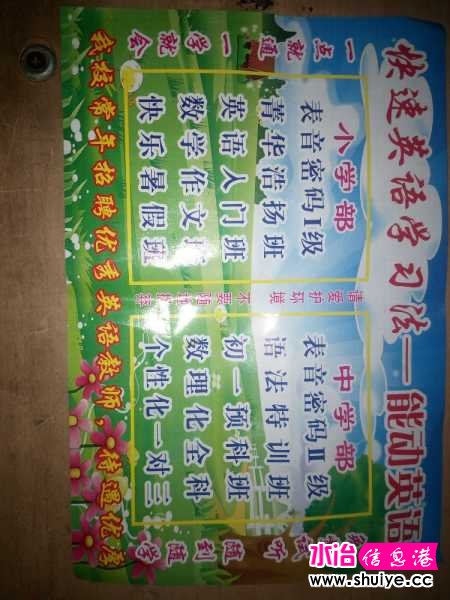 快速英语学习法—能动英语
一点就通一学就会
小学部
表音密码I级
菁华浩扬班
英语入门班
数学作文班
快乐暑假班
请爱护环境 不要随
中学部
表音密码II级
语法特训班
初一预科班
数理化全科
个性化一对三
听随到随学
我校常年招聘优秀英语教师，待遇优厚
水冶信息港
www.shuiye.cc